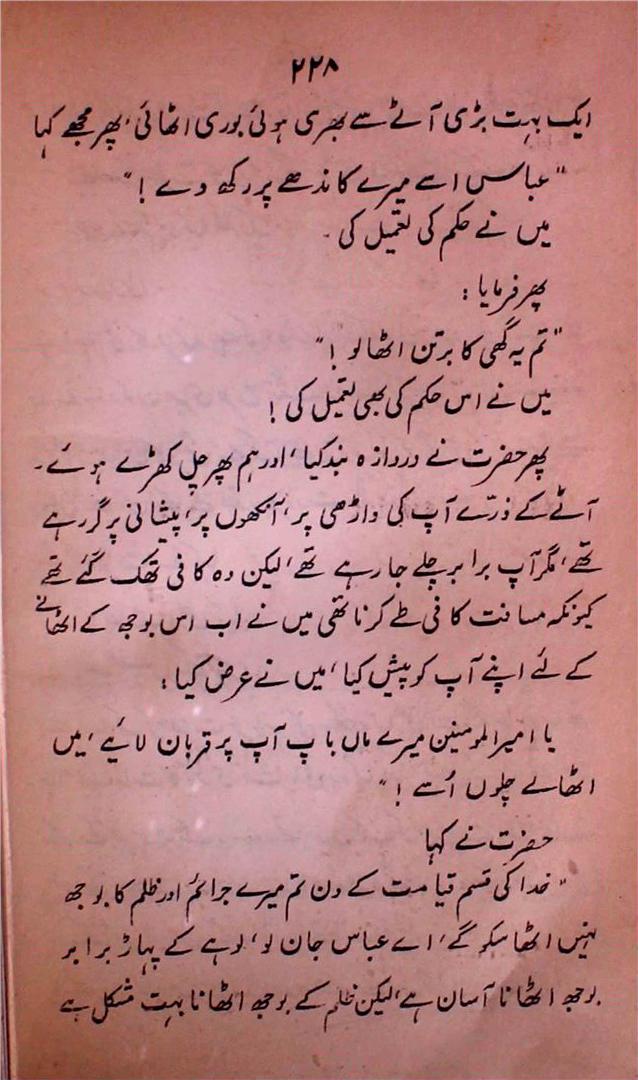 ۲۲۸
ایک بہت بڑی آٹے سے بھری ہوئی بوری اٹھائی، پھر مجھے کہا
"عباس اسے میرے کاندھے پر رکھ دے!"
میں نے حکم کی تعمیل کی۔
پھر فرمایا:
"تم یہ گھی کا برتن اٹھا لو!"
میں نے اس حکم کی بھی تعمیل کی!
پھر حضرت نے دروازہ بند کیا، اور ہم پھر چل کھڑے ہوئے۔
آٹے کے ذرّے آپ کی داڑھی پر، آنکھوں پر، پیشانی پر گر رہے
تھے، مگر آپ برابر چلے جا رہے تھے، لیکن وہ کافی تھک گئے تھے
کیونکہ مسافت کافی طے کرنا تھی میں نے اب اس بوجھ کے اٹھانے
کے لئے اپنے آپ کو پیش کیا، میں نے عرض کیا:
یا امیرالمومنین میرے ماں باپ آپ پر قربان لائیے، میں
اٹھالے چلوں اُسے!"
حضرت نے کہا
"خدا کی قسم قیامت کے دن تم میرے جرائم اور ظلم کا بوجھ
نہیں اٹھا سکو گے، اے عباس جان لو، لوہے کے پہاڑ برابر
بوجھ اٹھانا آسان ہے، لیکن ظلم کے بوجھ اٹھانا بہت مشکل ہے